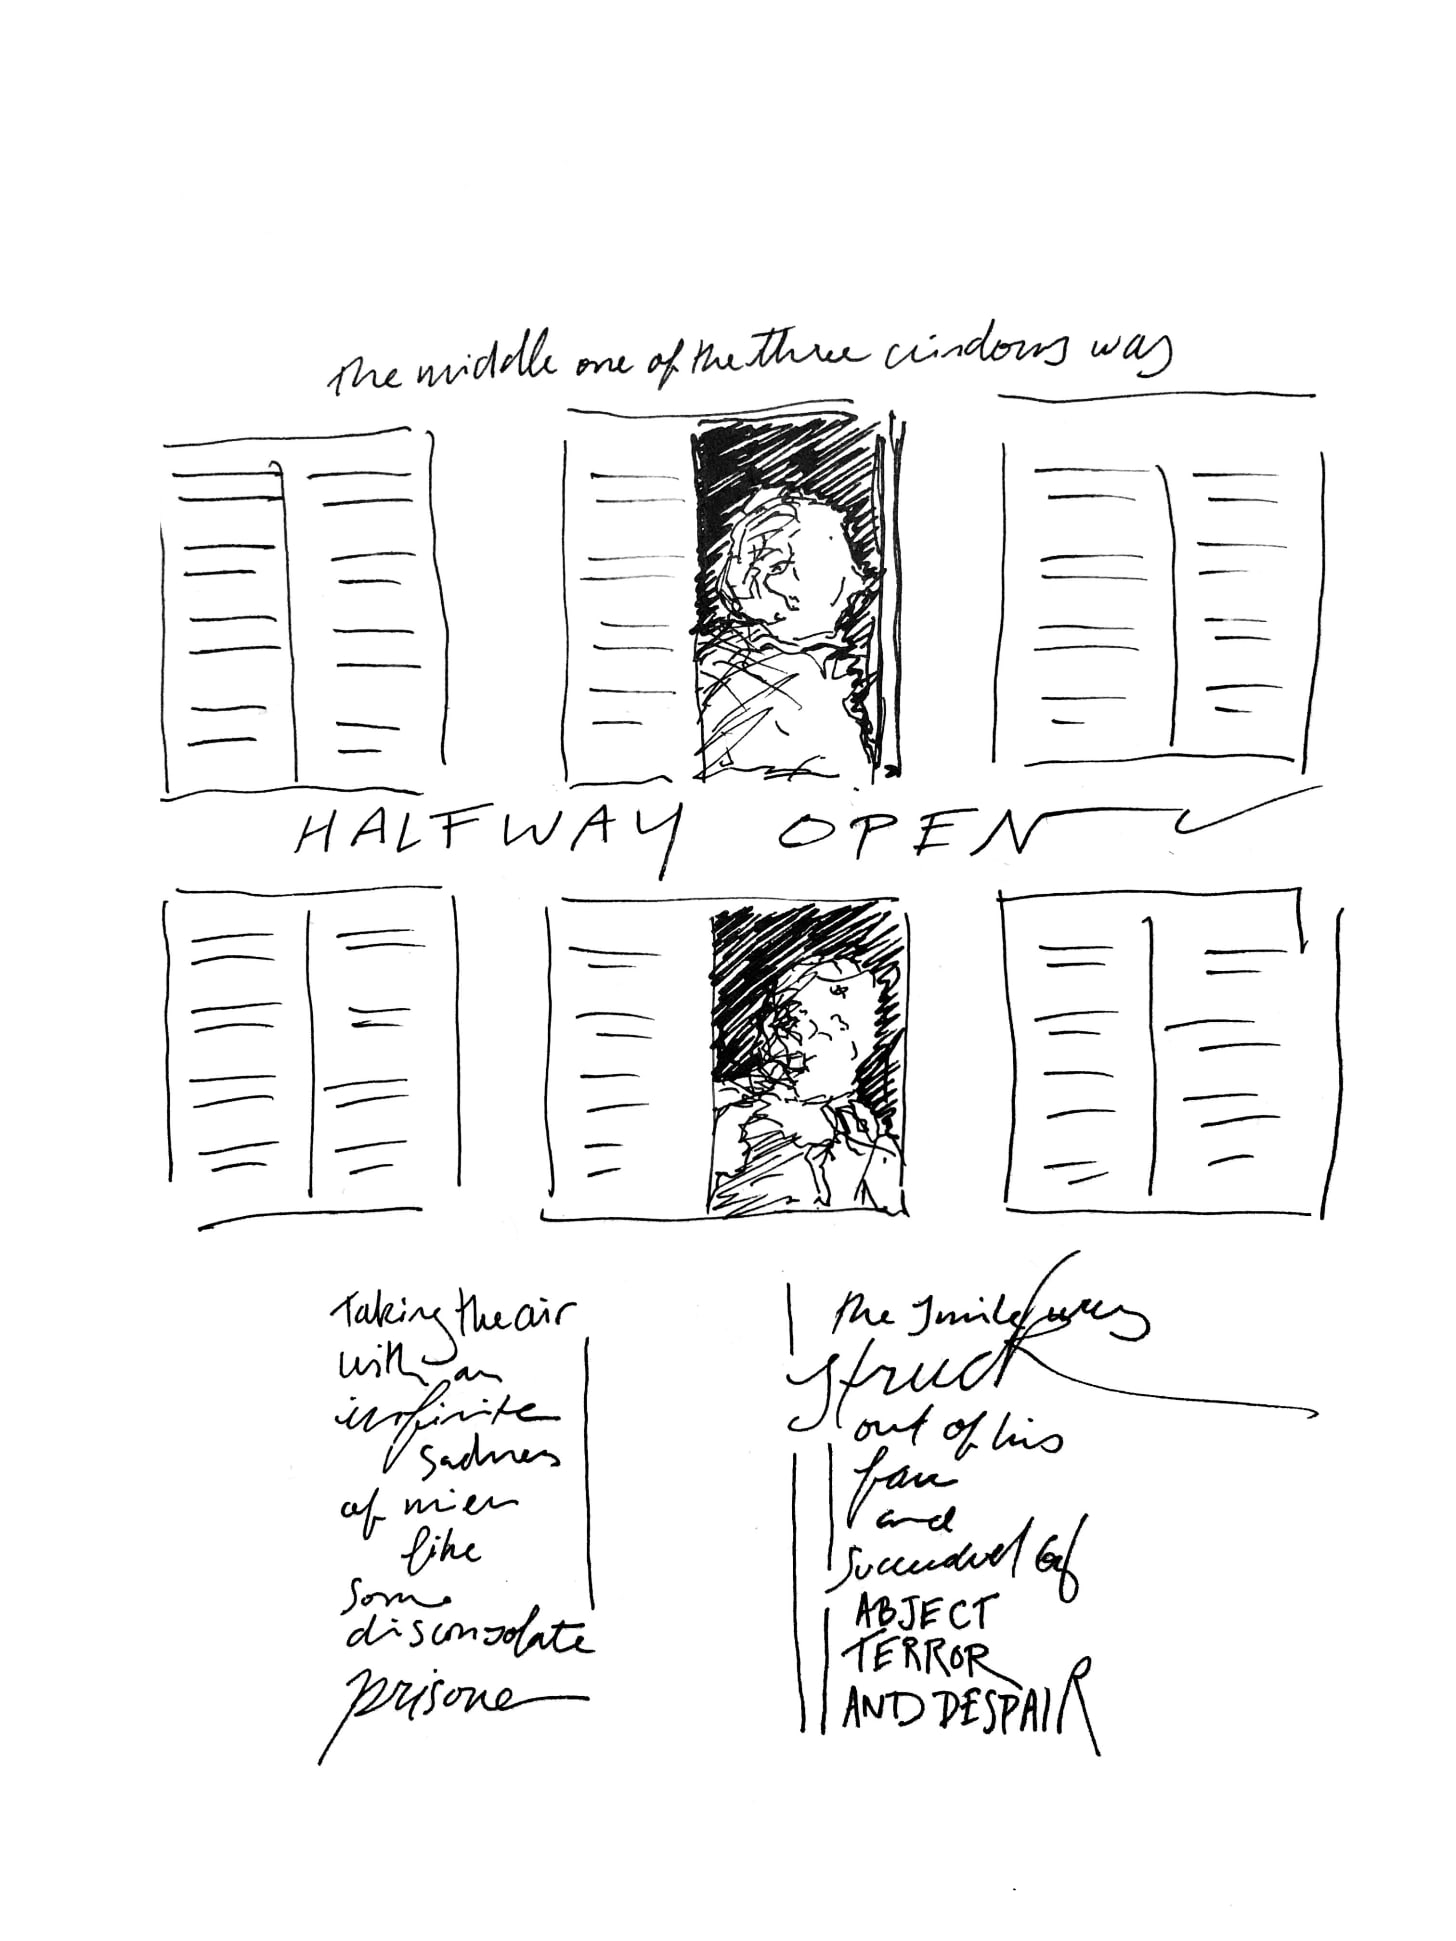 The middle one of the three windows was
HALFWAY OPEN
Taking the air
with an
infinite
sadness
of mien
like
some
disconsolate
prisoner
the smile was
struck
out of his
face
and
succeeded by
ABJECT
TERROR
AND DESPAIR